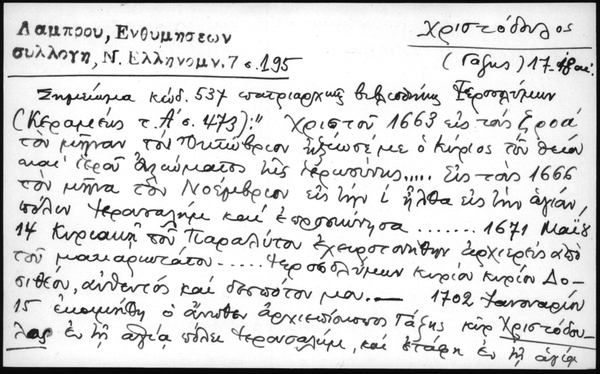 Λαμπρου, Ενθυμήσεων
συλλογή, Ν. Ελληνομν. 7 σ. 195
Χριστόδουλος
(Γάζης) 17.
Σημείωμα κώδ. 537 πατριαρχικῆς βιβλιοθήκης Ἱεροσολύμων
(Κεραμεύς τ. Α' σ. 473): " Χριστοῦ 1663 εἰς τοὺς
τὸν μῆναν τὸν Ὀκτώβριον ἠξίωσέ με ὁ κύριος τοῦ θείου
καὶ ἱεροῦ ἀξιώματος τῆς ἱερωσύνης..... Εἰς τοὺς 1666
τὸν μῆνα τὸν Νοέμβριον εἰς τὴν ί ἦλθα εἰς τὴν ἁγίαν
πόλιν Ἱερουσαλήμ καὶ ἐπροσκύνησα ....... 1671 Μαΐου
14 Κυριακῇ τοῦ Παραλύτου ἐχειροτονήθην ἀρχιερεὺς ἀπὸ
τοῦ μακαρωτάτου ..... Ἱεροσολύμων κυρίου κυρίου Δο-
σιθέου, αὐθεντός καὶ δεσπότου μου. — 1702 Ἰανουαρίου
15 ἐκοιμήθη ὁ ἄνωθεν ἀρχιεπίσκοπος Γάζης κὺρ Χριστόδου-
λος ἐν τῇ ἁγίᾳ πόλει Ἱερουσαλήμ, καὶ ἐτάφη ἐν τῇ ἁγίᾳ